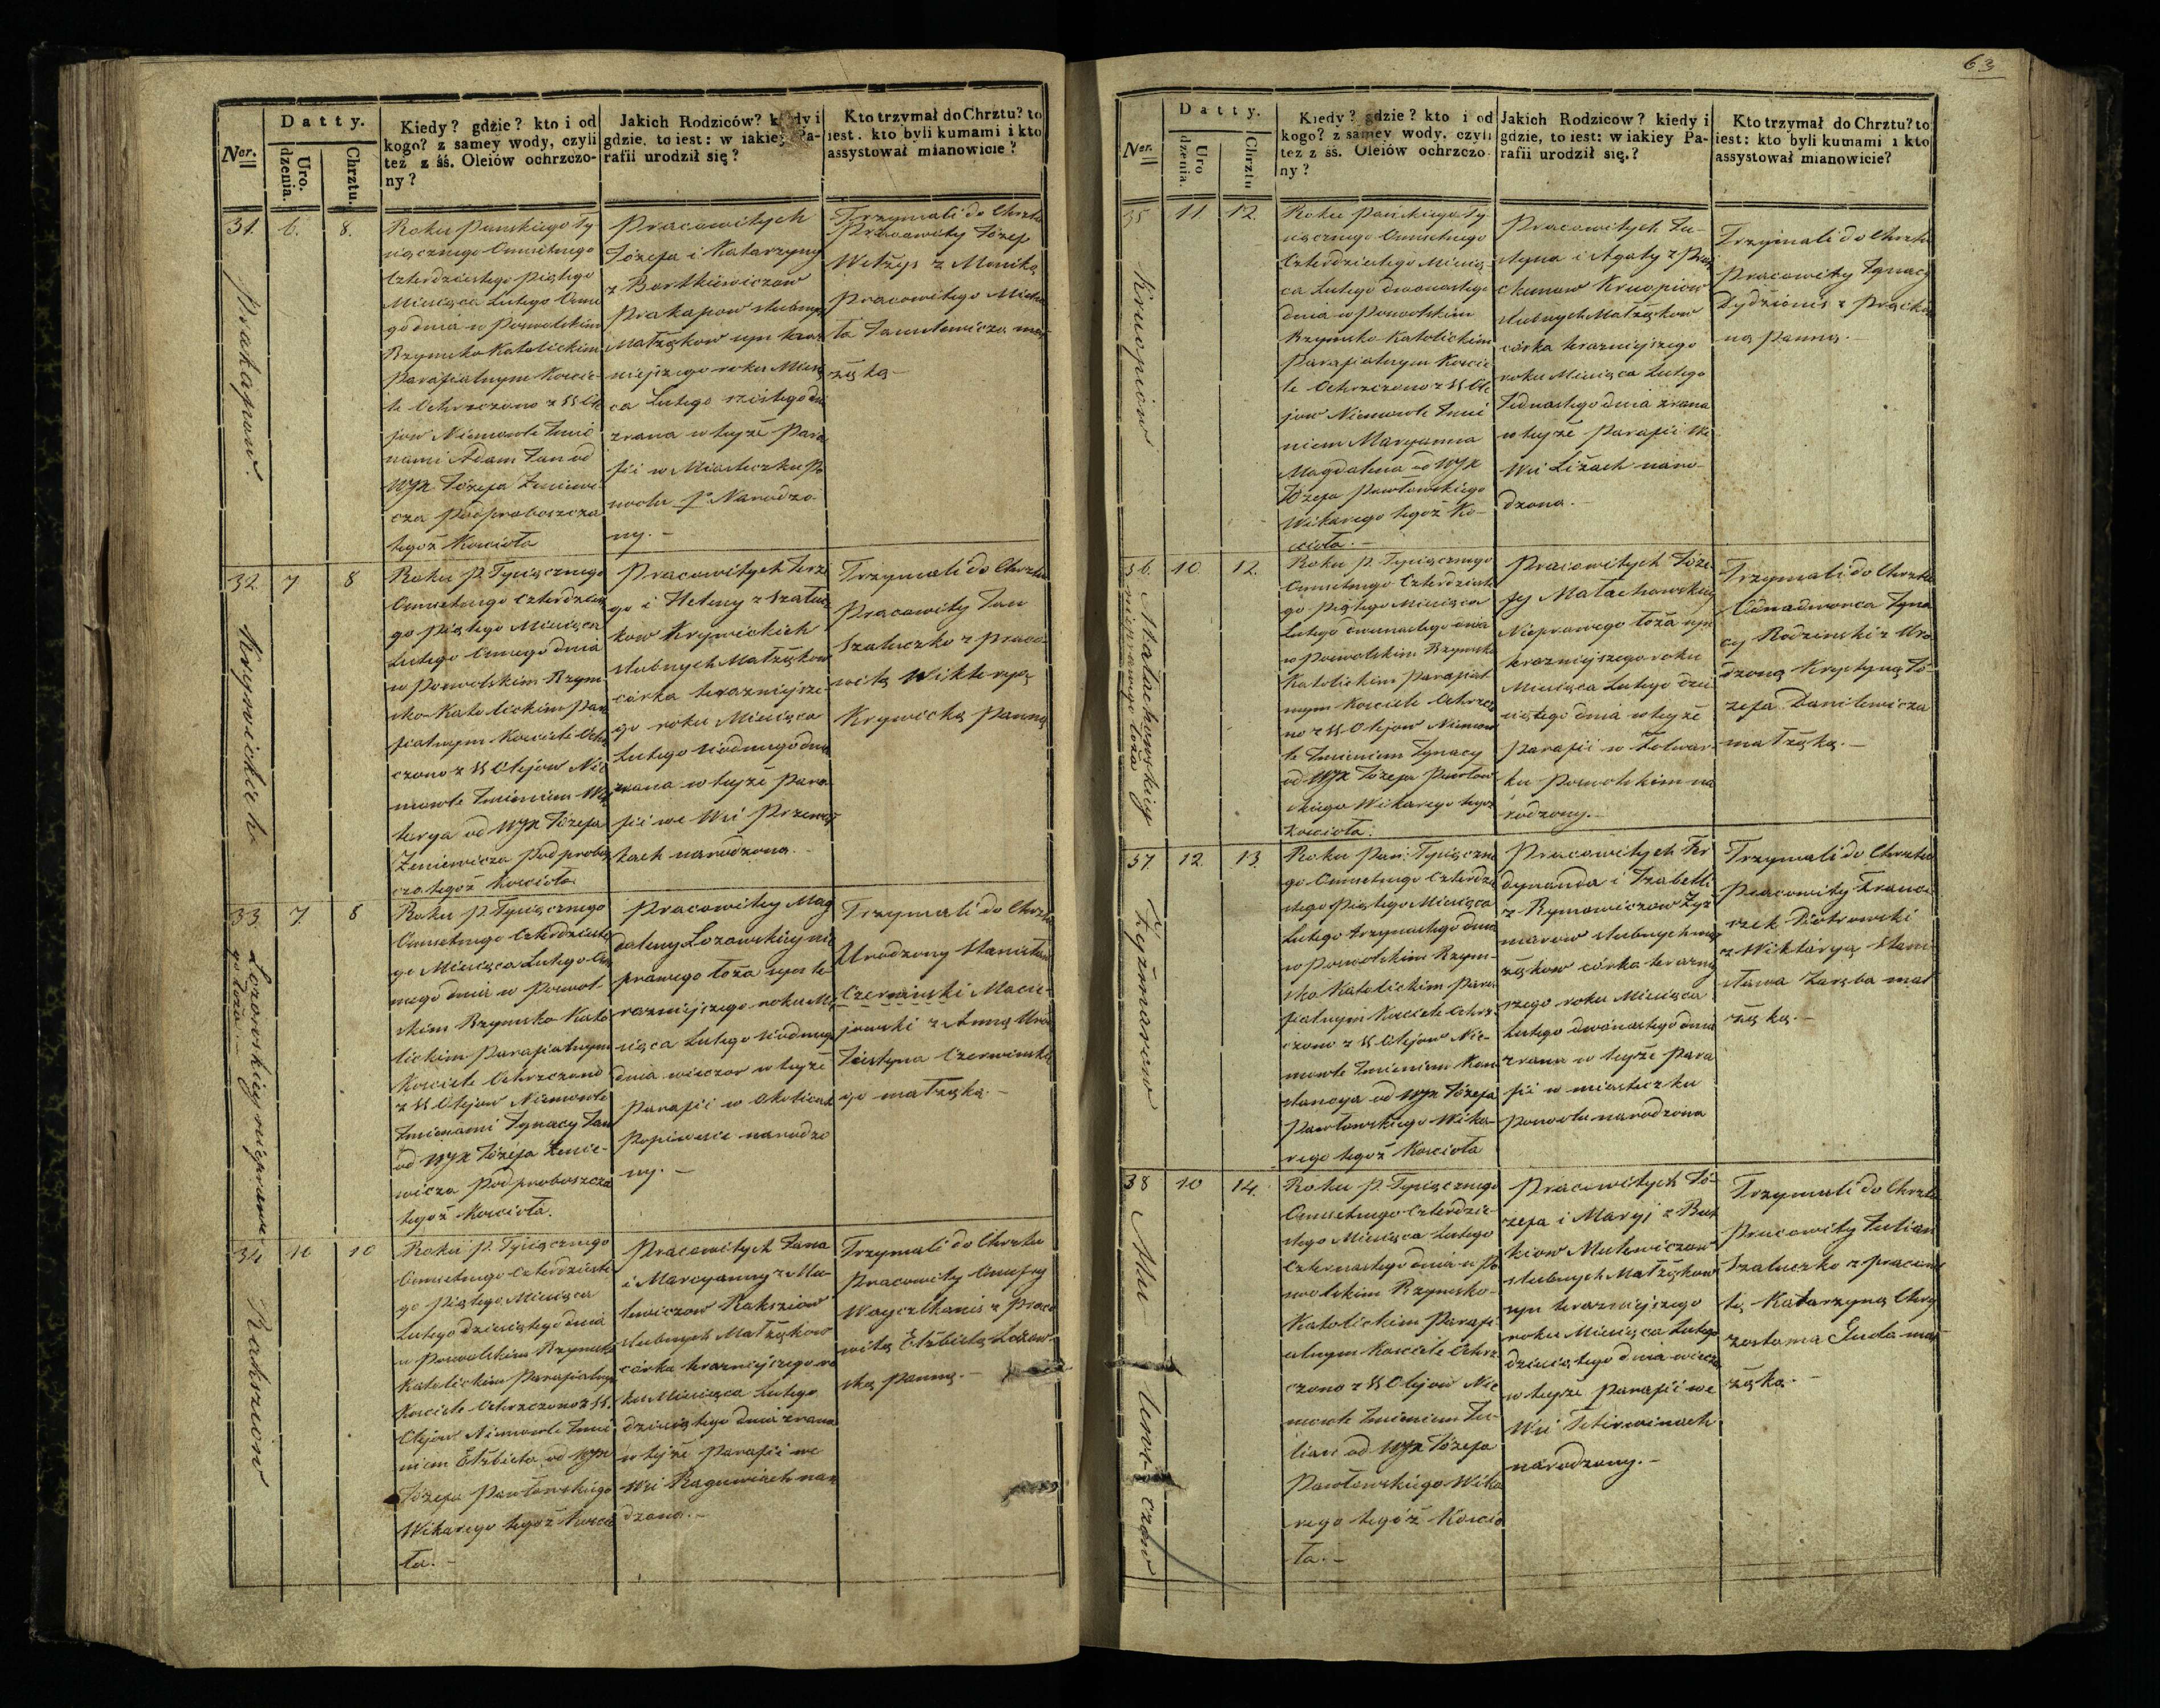 Datty.
Ner.
Uro.
dzenia.
Chrztu.
Kiedy? gdzie? kto i od
kogo? z samey wody, czyli
też z śś. Oleiów ochrzczo-
ny?
Jakich Rodziców? kiedy i
gdzie, to iest: w iakiey Pa-
rafii urodził się?
Kto trzymał do Chrztu? to
iest. kto byli kumami i kto
assystował mianowicie?
31.
Prakapow.
6.
8.
Roku Panskiego Ty
siącznego Osmsetnego
Czterdziestego Piątego
Miesiąca Lutego Osme
go dnia w Poswolskim
Rzymsko Katolickim
Parafialnym Koscie-
le Ochrzczono z SS Ole
jow Niemowle Imio
nami Adam Jan od
WJX Józefa Zmiewi-
cza Podproboszcza
tegoż Kościoła
Pracowitych
Józefa i Katarzyny
z Bartkiewiczow
Prakapow slubnych
Małżąkow syn teraz
niejszego roku Miesią
ca Lutego szostego dn
zrana w tejże Para
fii w Miasteczku Po
wolu Narodzo
ny. -
Trzymali do Chrztu
Pracowity Józef
Witżys z Moniką
Pracowitego Micha
ła małżą
żąką -
32.
Krywickich
7
8
Roku P. Tysiącznego
Osmsetnego Czterdzieste
go Piątego Miesiąca
Lutego Osmego dnia
w Poswolskim Rzym
sko-Katolickim Para
fialnym Kosciele Ochrz
czono z SS Olejow Nie
mowle Imieniem Wik
torya od WJX Józefa
Zmiewicza Podprobosz
cza tegoż Kościoła.
Pracowitych Jerze
go i Heleny z Szałucz
kow Krywickich
slubnych Małżąkow
córka terazniejsze
go roku Miesiąca
Lutego siodmego dnia
zrana w tejże Para
fii we Wsi
kach narodzona.
Trzymali do Chrztu
Pracowity Jan
Szałuczko z Praco
witą Wiktoryą
Krywicką Panną
33.
Lozowskiey nieprawe
go łoża. -
7
8
Roku P. Tysiącznego
Osmsetnego Czterdzieste
go Miesiąca Lutego Os
mego dnia w Poswol
skim Rzymsko Kato
lickim Parafialnym
Kosciele Ochrzczono
z SS Olejow Niemowle
Imionami Ignacy Jan
od WJX Józefa Zmie-
wicza Podproboszcza
tegoż Kościoła.
Pracowitey Mag
daleny Lozowskiey nie
prawego łoża syn te
razniejszego roku Mie
siąca Lutego siodmego
dnia wieczor w tejże
Parafii w Okolicach
Popiwesie narodzo
ny. -
Trzymali do Chrztu
Urodzony Stanisław
Czerwinski Macie-
jowski z Anną Uro
Justyna Czerwinskie
go małżąką. -
34
Rakszow
10
10
Roku P. Tysiącznego
Osmsetnego Czterdzieste
go Piątego Miesiąca
Lutego dziesiątego dnia
w Poswolskim Rzymsko
Katolickim Parafialnym
Kosciele Ochrzczono z SS.
Olejow Niemowle Imie
niem Elżbieta od WJX
Józefa Pawłowskiego
Wikarego tegoż Koscio
ła. -
Pracowitych Jana
i Marcyanny z Mu-
lewiczow Rakszow
slubnych Małżąkow
córka terazniejszego ro
ku Miesiąca Lutego
dziesiątego dnia zrana
w tejże Parafii we
Wsi Raguwiach naro
dzona. -
Trzymali do Chrztu
Pracowity Onufry
z Praco
witą Elżbietą Lozow
ską Panną. -
63
Datty.
Ner.
Uro
dzenia.
Chrztu
Kiedy? gdzie? kto i od
kogo? z samey wody, czyli
też z śś. Oleiów ochrzczo-
ny?
Jakich Rodzicow? kiedy i
gdzie, to iest: w iakiey Pa-
rafii urodził się.?
Kto trzymał do Chrztu? to
iest: kto byli kumami i kto
assystował mianowicie?
35
Kruopiow
11
12.
Roku Pańskiego Ty
siącznego Osmsetnego
Czterdziestego Miesią
ca Lutego dwonastego
dnia w Poswolskim
Rzymsko-Katolickim
Parafialnym Koscie
le Ochrzczono z SS Ole
jow Niemowle Imie
niem Maryanna
Magdalena od WJX
Józefa Pawłowskiego
Wikarego tegoż Ko-
scioła. -
Pracowitych Ju-
styna i Agaty z
Kruopiow
slubnych Małżąkow
córka terazniejszego
roku Miesiąca Lutego
Jednastego dnia zrana
w tejże Parafii we
Wsi Liżach naro-
dzona. -
Trzymali do Chrztu
Pracowity Ignacy
z
ną Panną. -
36.
Małachowskiey
nieprawego łoża
10
12.
Roku P. Tysiącznego
Osmsetnego Czterdzieste
go Piątego Miesiąca
Lutego dwunastego dnia
w Poswolskim Rzymsko
Katolickim Parafial
nym Kosciele Ochrzczo
no z SS Olejow Niemow
le Imieniem Ignacy
od WJX Józefa Pawłow
skiego Wikarego tegoż
Koscioła.
Pracowitych Józe
fy Małachowskiey
Nieprawego Łoża syn
terazniejszego roku
Miesiąca Lutego dzie
siątego dnia w tejże
Parafii w Folwar
ku Poswolskim na
rodzony. -
Trzymali do Chrztu
Odnadworca Igna
cy Rodzinski z Uro
dzoną Krystyną Jó-
zefa Danilewicza
małżąką. -
37.
Żyżmarow
12.
13.
Roku Pań: Tysiączne
go Osmsetnego Czterdzie
stego Piątego Miesiąca
Lutego trzynastego dnia
w Poswolskim Rzym-
sko Katolickim Para
fialnym Kosciele Ochrz
czono z SS Olejow Nie-
mowle Imieniem Kon
stancya od WJX Józefa
Pawłowskiego Wika-
rego tegoż Koscioła
Pracowitych Fer
dynanda i Izabelli
z Rymowiczow Żyż
marow slubnych mał
żąkow córka teraznie
szego roku Miesiąca
Lutego dwónastego dnia
zrana w tejże Para
fii w miasteczku
Poswolu narodzona
Trzymali do Chrztu
Pracowity Franci
szek Piotrowski
z Wiktóryą Stani
sława Zaręba mał
żąką. -
38
Mulewiczow
10
14.
Roku P. Tysiącznego
Osmsetnego Czterdzie-
stego Miesiąca Lutego
Czternastego dnia w Po
swolskim Rzymsko-
Katolickim Parafi
alnym Kosciele Ochrz
czono z SS Olejow Nie
mowle Imieniem Ju-
lian od WJX Józefa
Pawłowskiego Wika
rego tegoż Koscio
ła. -
Pracowitych Jó-
zefa i Maryi z
Mulewiczow
slubnych Małżąkow
syn terazniejszego
roku Miesiąca Lutego
dziesiątego dnia wieczor
w tejże Parafii we
Wsi
narodzony. -
Trzymali do Chrztu
Pracowity Julian
Szałuczko z Pracowi
tą Katarzyną Chry
zostoma Guda mał
żąką. -